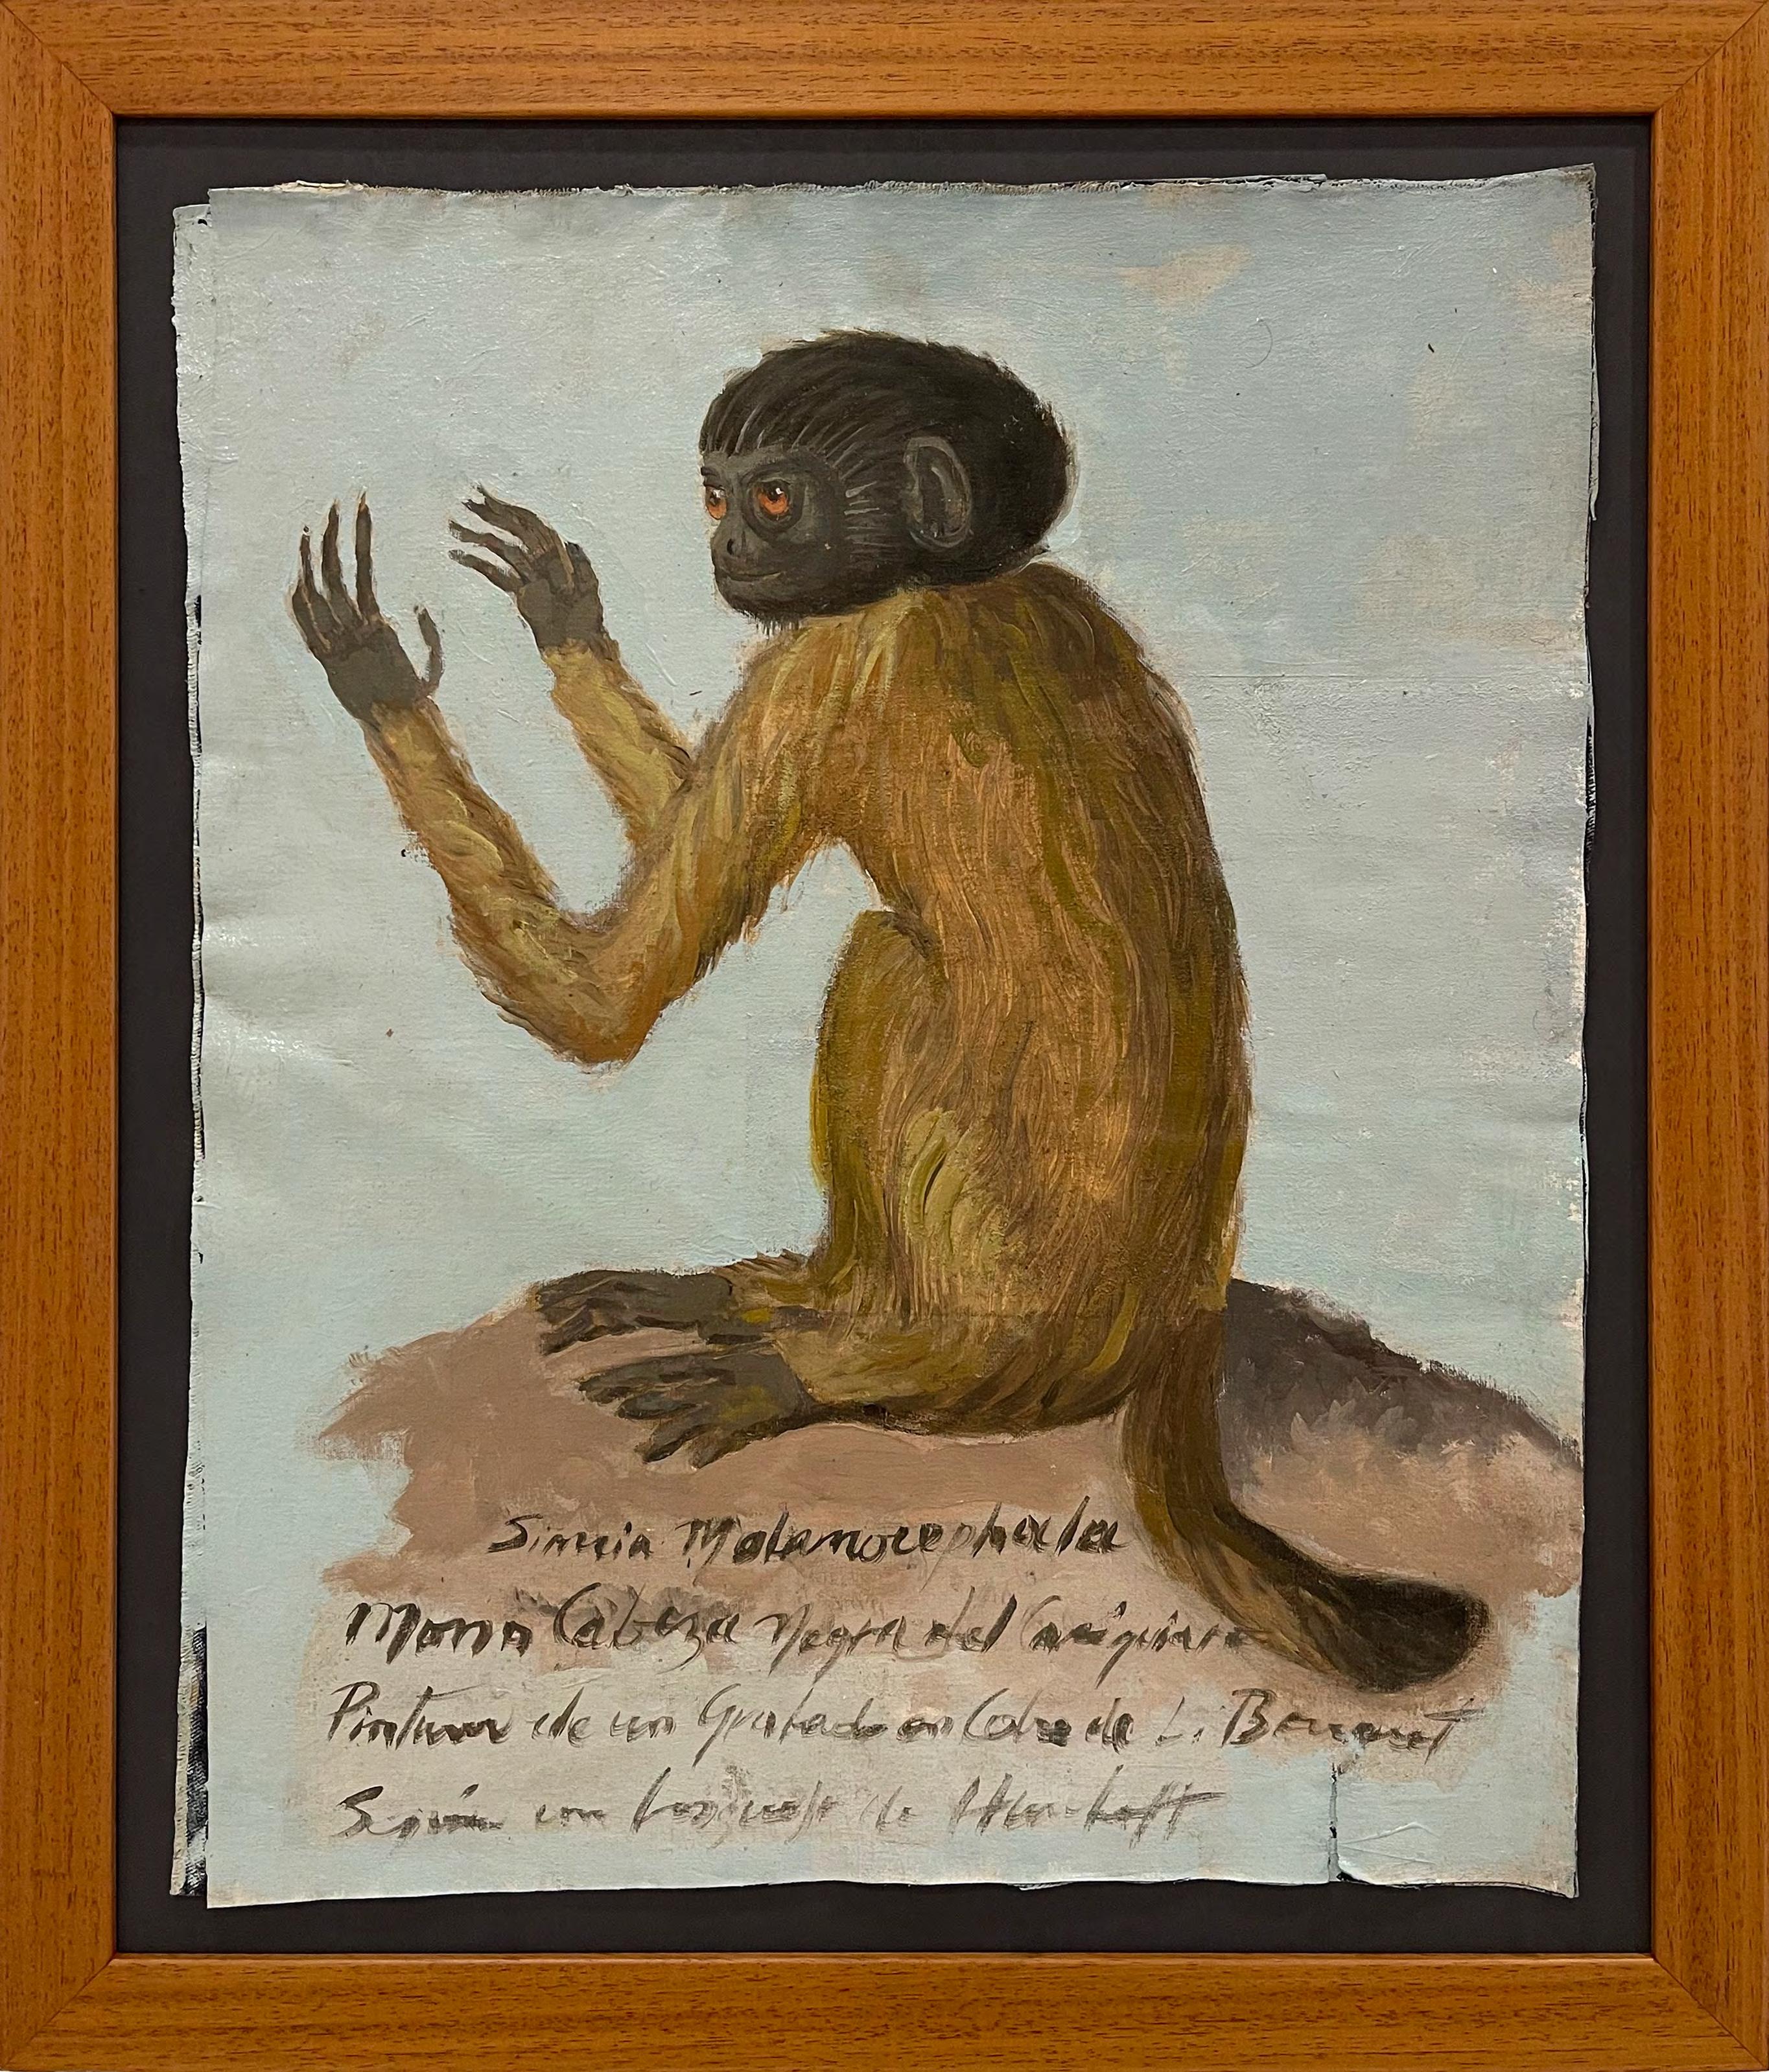 Simia Melanocephala
Mono Cabeza Negra del Casiquiare
Pintura de un Grabado en Cobre de L. Bouquet
Según un bosquejo de Humboldt